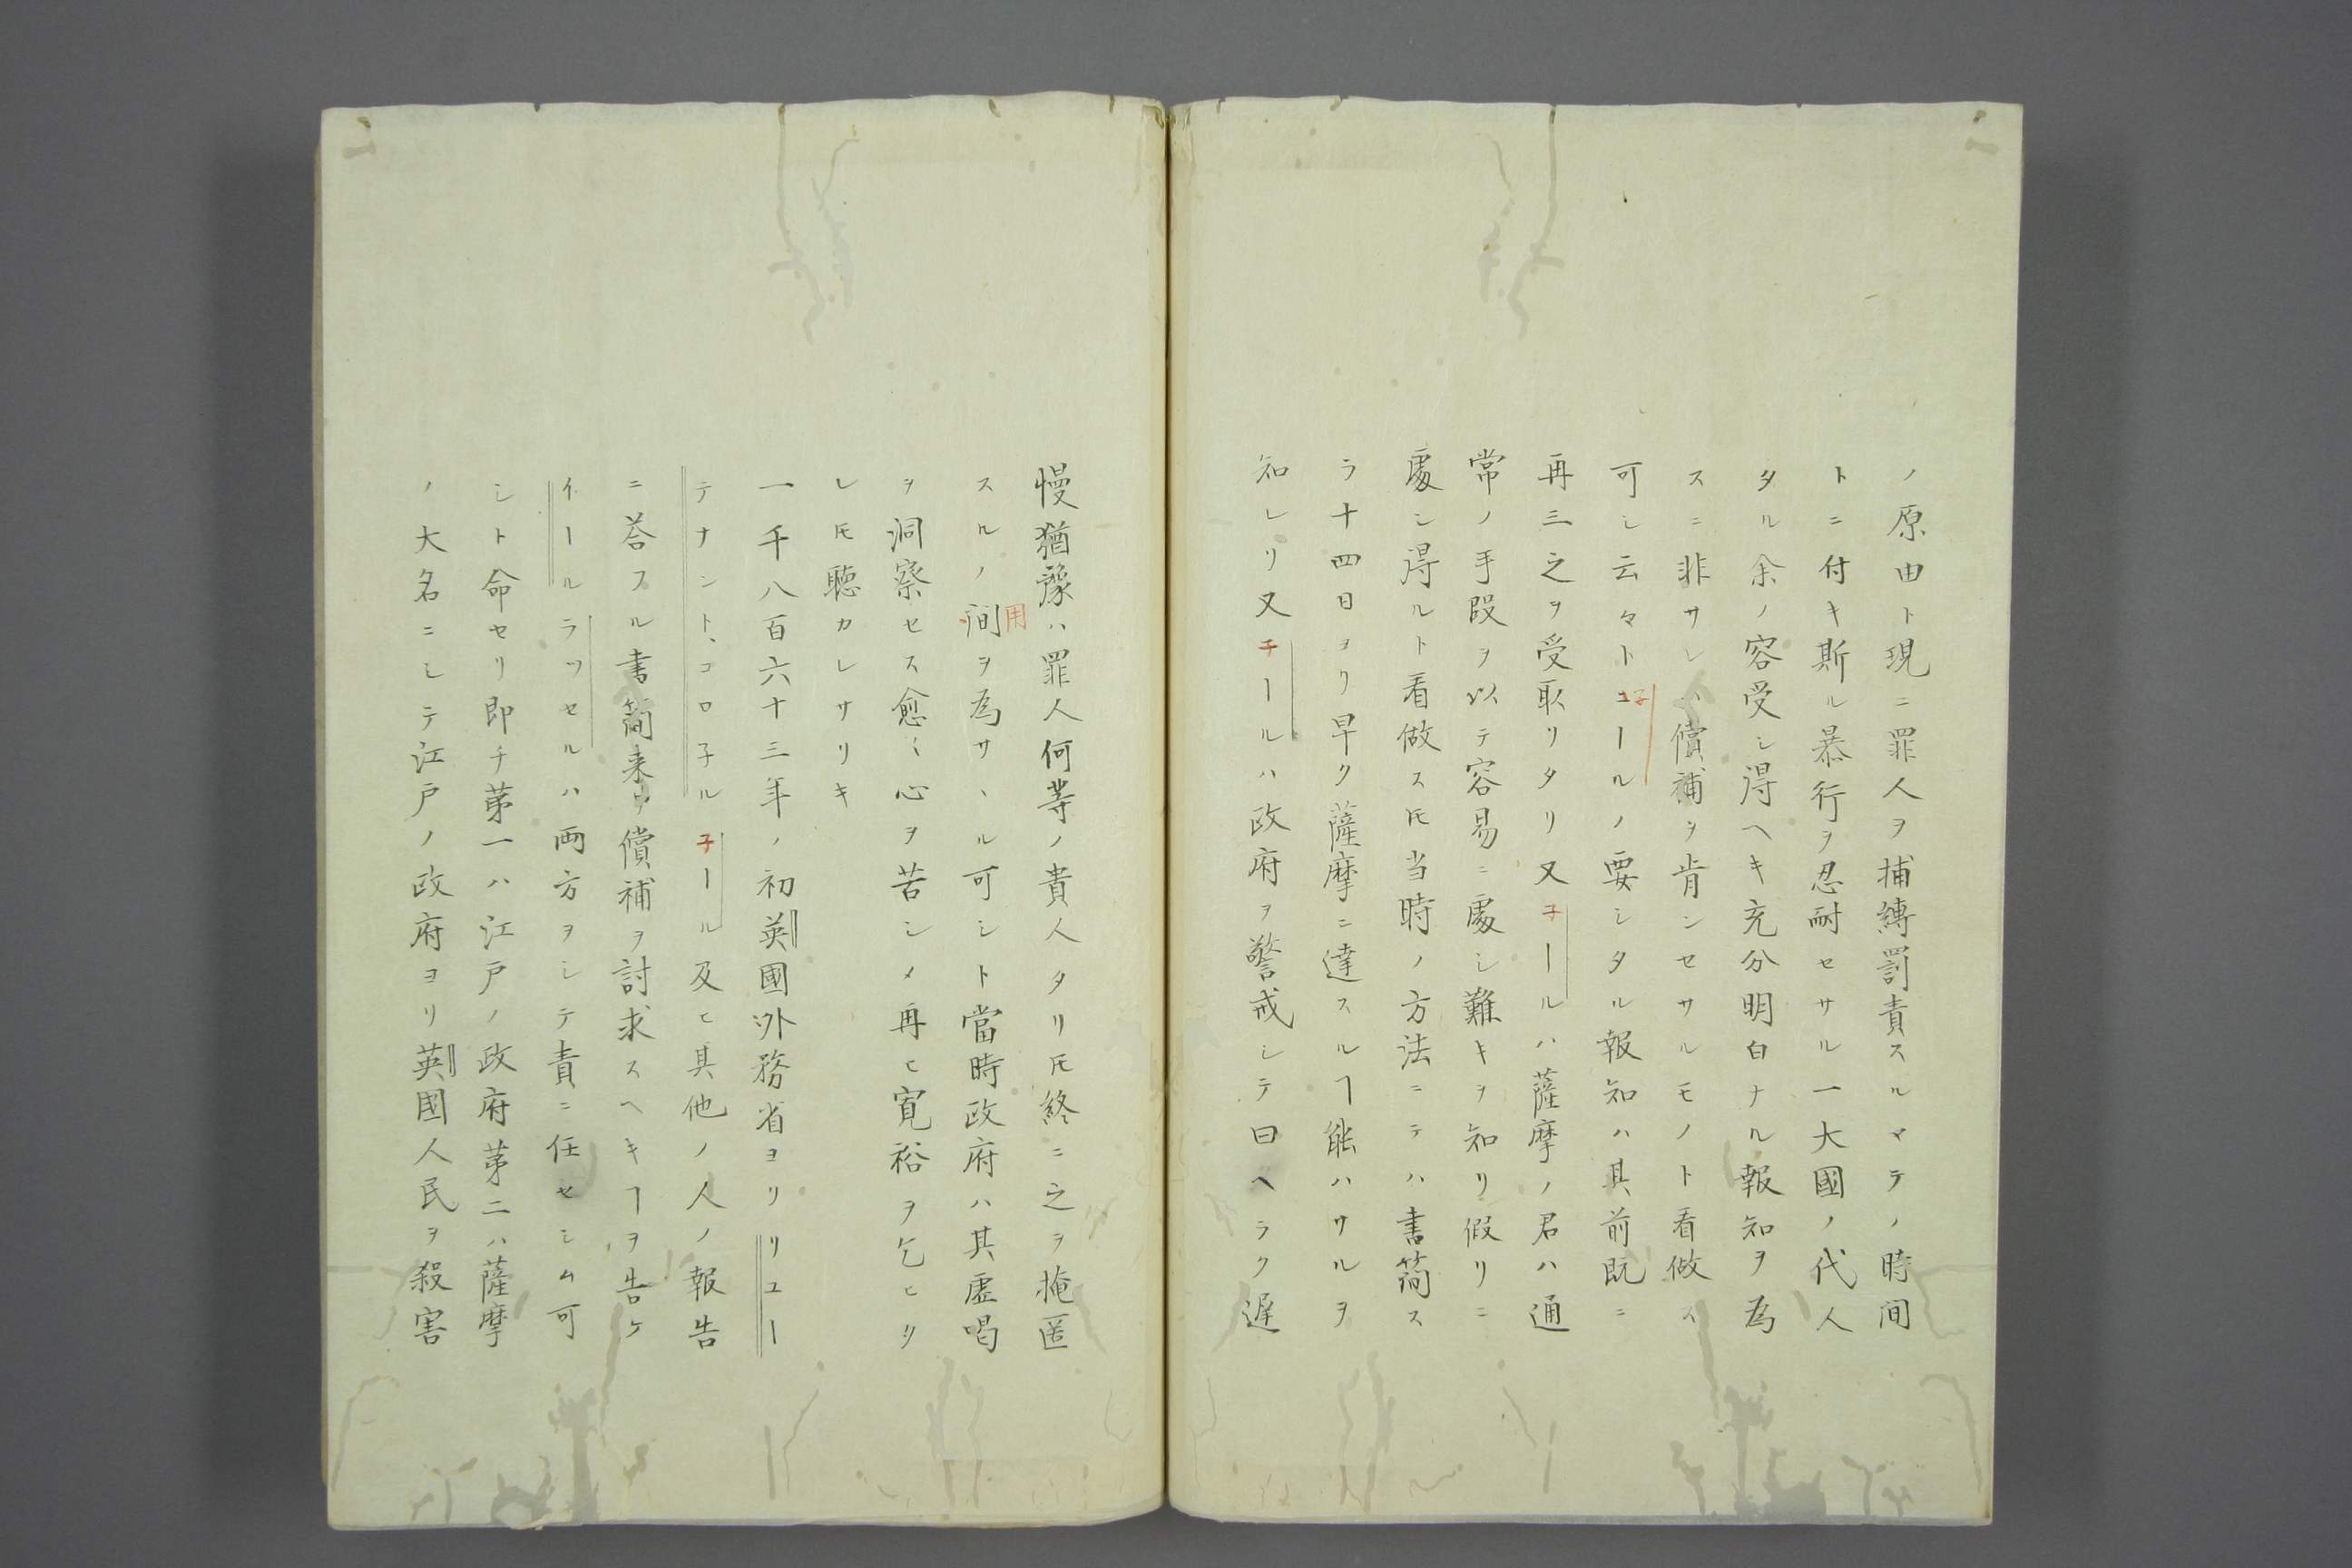 ノ原由ト現ニ罪人ヲ捕縛罰責スルマテノ時間
トニ付キ斯ル暴行ヲ忍耐セサル一大國ノ代人
タル余ノ容受シ得ヘキ充分明白ナル報知ヲ為
スニ非サレハ償補ヲ肯ンセサルモノト看做ス
可シ云々ト子ールノ要シタル報知ハ其前既ニ
再三之ヲ受取リタリ又子ールハ薩摩ノ君ハ通
常ノ手段ヲ以テ容易ニ處シ難キヲ知リ假リニ
處シ得ルト看做スモ当時ノ方法ニテハ書簡ス
ラ十四日ヨリ早ク薩摩ニ達スルヿ能ハサルヲ
知レリ又子ールハ政府ヲ警戒シテ曰ヘラク遅
慢猶豫ハ罪人何等ノ貴人タリ𪜈終ニ之ヲ掩匿
スルノ用ヲ為サヽル可シト當時政府ハ其虚喝
ヲ洞察セス愈〻心ヲ苦シメ再ヒ寛裕ヲ乞ヒタ
レ𪜈聴カレサリキ
一千八百六十三年ノ初英國外務省ヨリリユー
テナント、コロ子ル子ール及ヒ其他ノ人ノ報告
ニ荅フル書簡来リ償補ヲ討求スヘキヿヲ告ケ
イールラッセルハ両方ヲシテ責ニ任セシム可
シト命セリ即チ第一ハ江戸ノ政府第二ハ薩摩
ノ大名ニシテ江戸ノ政府ヨリ英國人民ヲ殺害